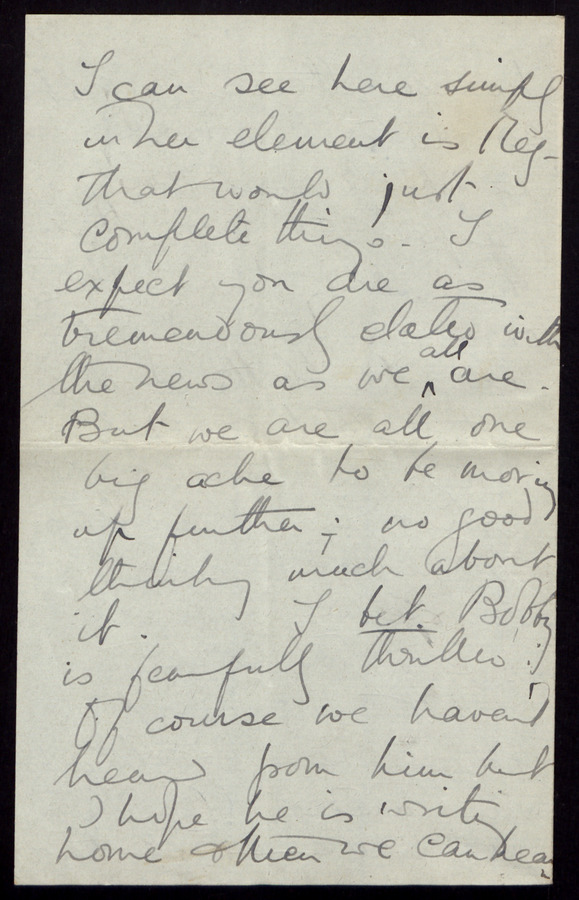 I can see here simply
in her element is Reg -
that would just
complete things. I
expect you are as
tremendously elated with
the news as we ^all are.
But we are all one
big ache to be moving
up further; no good
thinking much about
it. I bet Bobby
is fearfully thrilled!
Of course we haven't
heard from him but
I hope he is writing
home & then we can hear